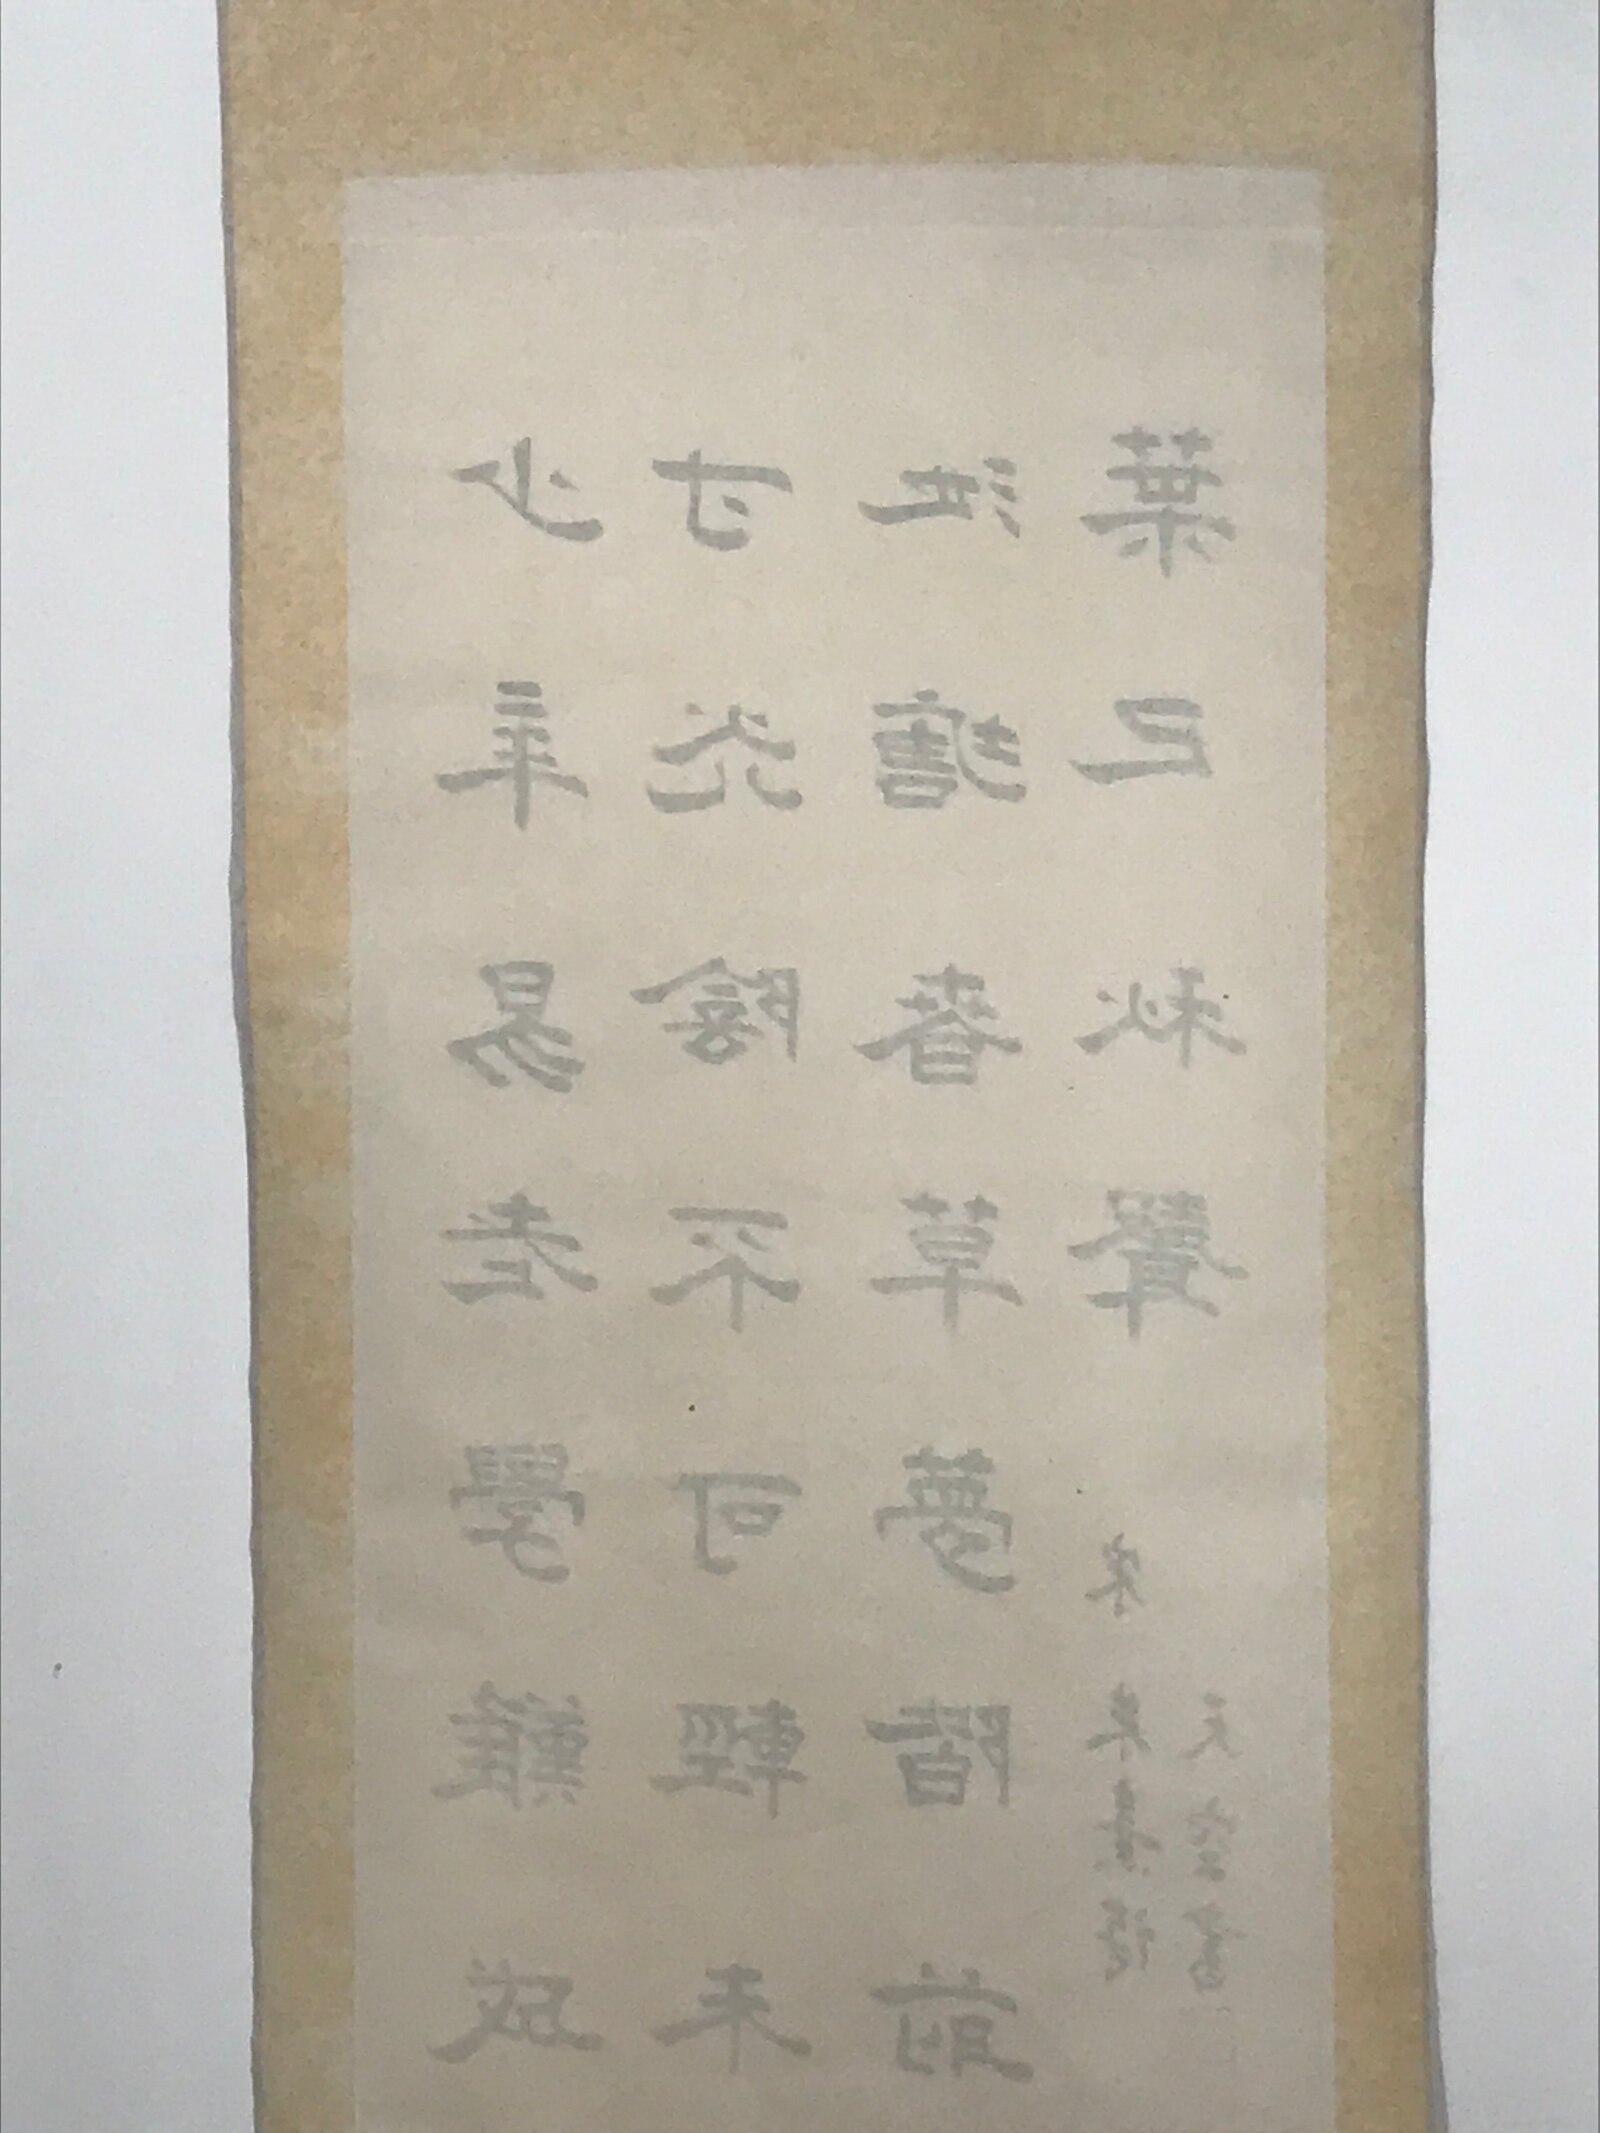 少年易老學難成
寸光陰不可輕未
池塘春草夢階前
葉已秋聲
宋朱熹詩
書